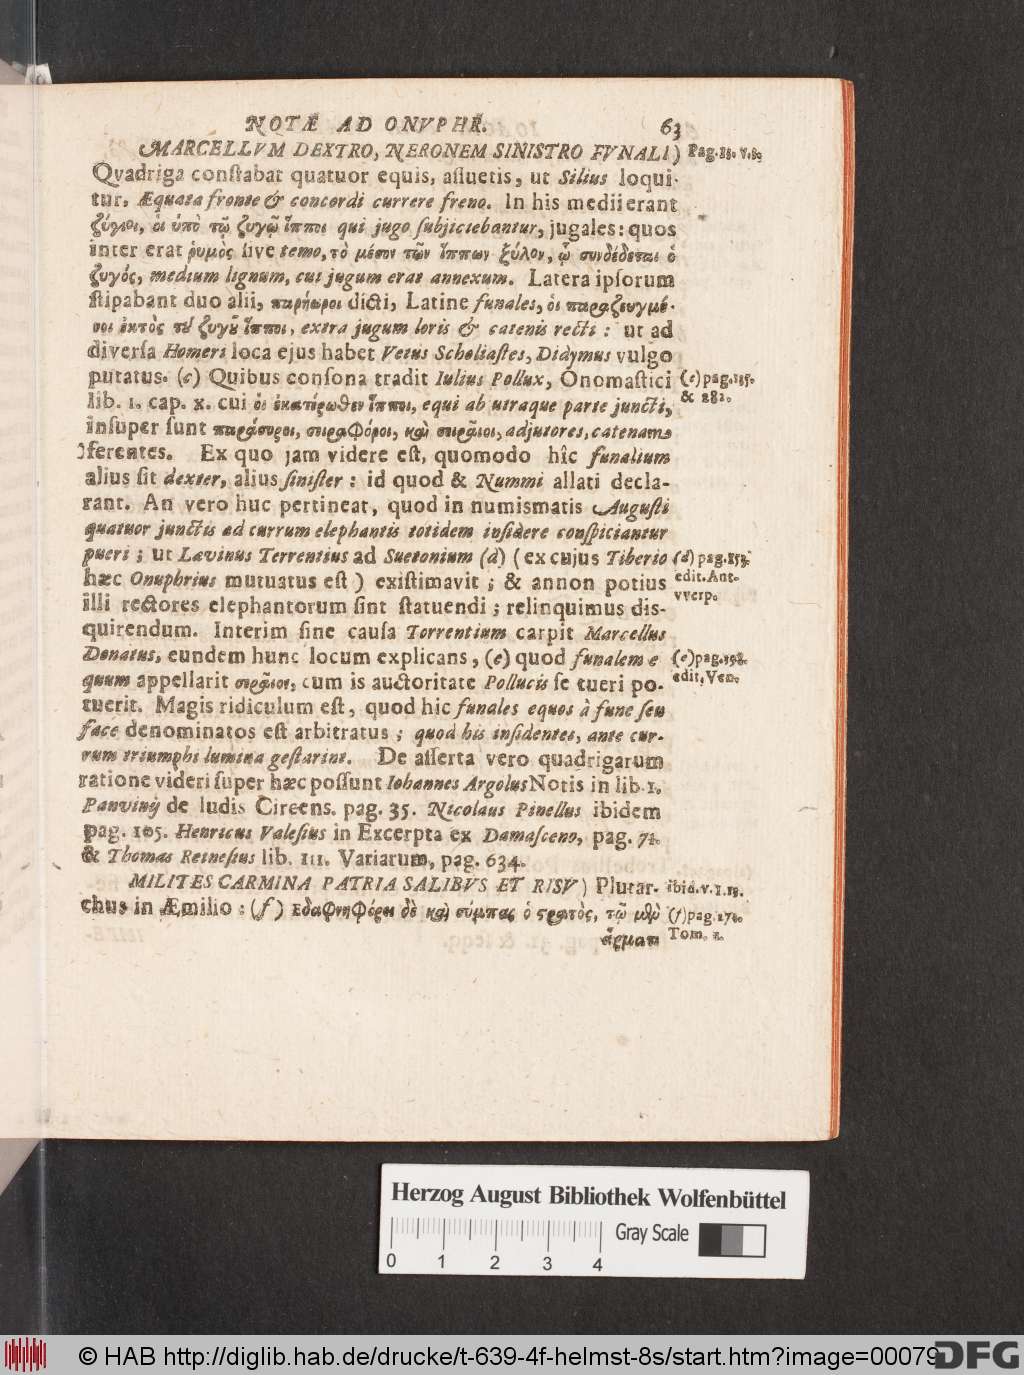 NOTÆ AD ONVPHR. 63
MARCELLVM DEXTRO, NERONEM SINISTRO FVNALI) Pag. 18. v. 8.
Qvadriga conſtabat quatuor equis, aſſuetis, ut Silius loqui-
tur, Æquata fronte & concordi currere freno. In his medii erant
ζύγιοι, οἱ ὑπὸ τῷ ζυγῷ ἵπποι qui jugo ſubjiciebantur, jugales: quos
inter erat ῥυμὸς ſive temo, τὸ μέσον τῶν ἵππων ξύλον, ᾧ συνδέδεται ὁ
ζυγός, medium lignum, cui jugum erat annexum. Latera ipſorum
ſtipabant duo alii, παρήωροι dicti, Latine funales, οἱ παραζευγμέ-
νοι ἐκτὸς τοῦ ζυγοῦ ἵπποι, extra jugum loris & catenis recti: ut ad
diverſa Homeri loca ejus habet Vetus Scholiaſtes, Didymus vulgo
putatus. (c) Quibus conſona tradit Iulius Pollux, Onomaſtici (c) pag. 155.
lib. 1. cap. x. cui οἱ ἑκατέρωθεν ἵπποι, equi ab utraque parte juncti, & 281.
inſuper ſunt παράσυροι, σειραφόροι, καὶ σειραῖοι, adjutores, catenam
ferentes. Ex quo jam videre eſt, quomodo hîc funalium
alius ſit dexter, alius ſiniſter: id quod & Nummi allati decla-
rant. An vero huc pertineat, quod in numismatis Auguſti
quatuor junctis ad currum elephantis totidem inſidere conſpiciantur
pueri; ut Lævinus Torrentius ad Suetonium (d) (ex cujus Tiberio (d) pag. 153.
hæc Onuphrius mutuatus eſt) exiſtimavit; & annon potius edit. Ant-
illi rectores elephantorum ſint ſtatuendi; relinquimus dis- vverp.
quirendum. Interim ſine cauſa Torrentium carpit Marcellus
Donatus, eundem hunc locum explicans, (e) quod funalem e (e) pag. 198.
quum appellarit σειραῖον, cum is auctoritate Pollucis ſe tueri po- edit. Ven.
tuerit. Magis ridiculum eſt, quod hic funales equos à fune ſeu
face denominatos eſt arbitratus; quod his inſidentes, ante cur-
rum triumphi lumina geſtarint. De aſſerta vero quadrigarum
ratione videri ſuper hæc poſſunt Iohannes Argolus Notis in lib. 1.
Panvinij de ludis Circens. pag. 35. Nicolaus Pinellus ibidem
pag. 105. Henricus Valeſius in Excerpta ex Damaſceno, pag. 71.
& Thomas Reineſius lib. III. Variarum, pag. 634.
MILITES CARMINA PATRIA SALIBVS ET RISV) Plutar- ibid. v. 1. 19.
chus in Æmilio: (f) Εδαφνηφόρει δὲ καὶ σύμπας ὁ στρατὸς, τῷ μὲν (f) pag. 270.
ἅρματι Tom. 2.
Herzog August Bibliothek Wolfenbüttel
Gray Scale
0 1 2 3 4
© HAB http://diglib.hab.de/drucke/t-639-4f-helmst-8s/start.htm?image=00079
DFG